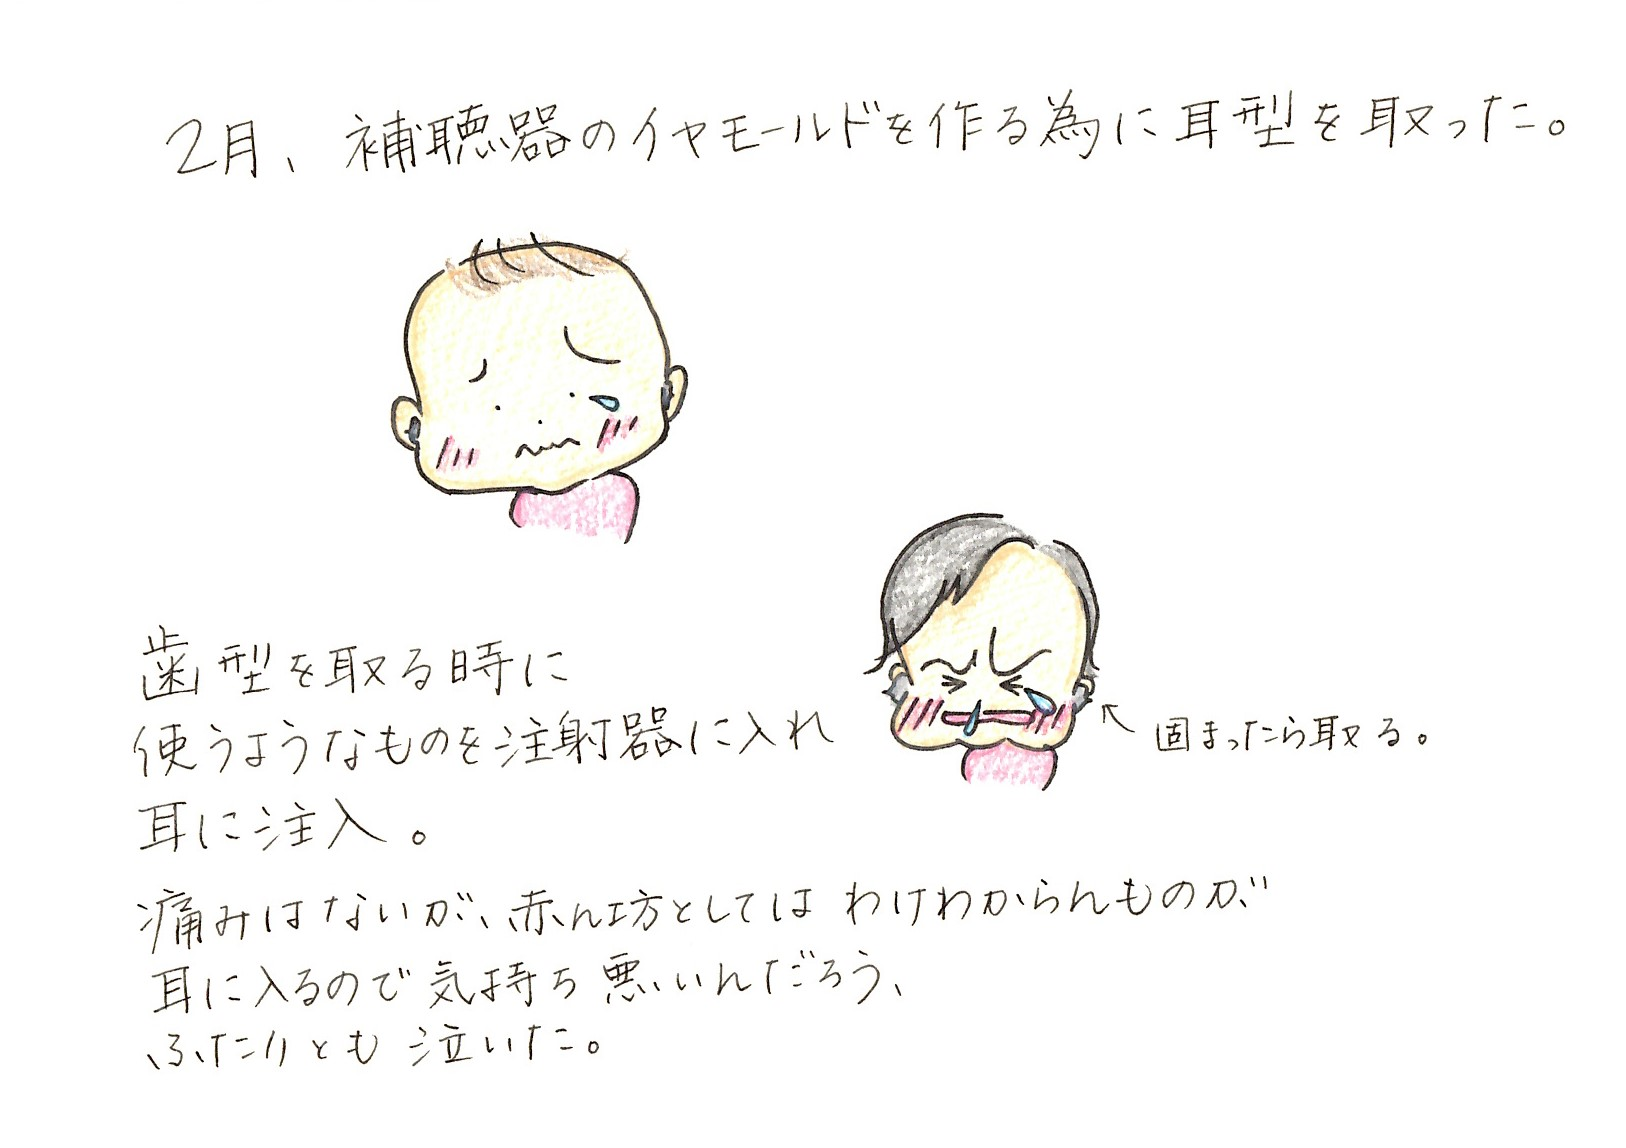 2月、補聴器のイヤモールドを作る為に耳型を取った。
歯型を取る時に
使うようなものを注射器に入れ
耳に注入。
固まったら取る。
痛みはないが、赤ん坊としてはわけわからんものが
耳に入るので気持ち悪いんだろう、
ふたりとも泣いた。